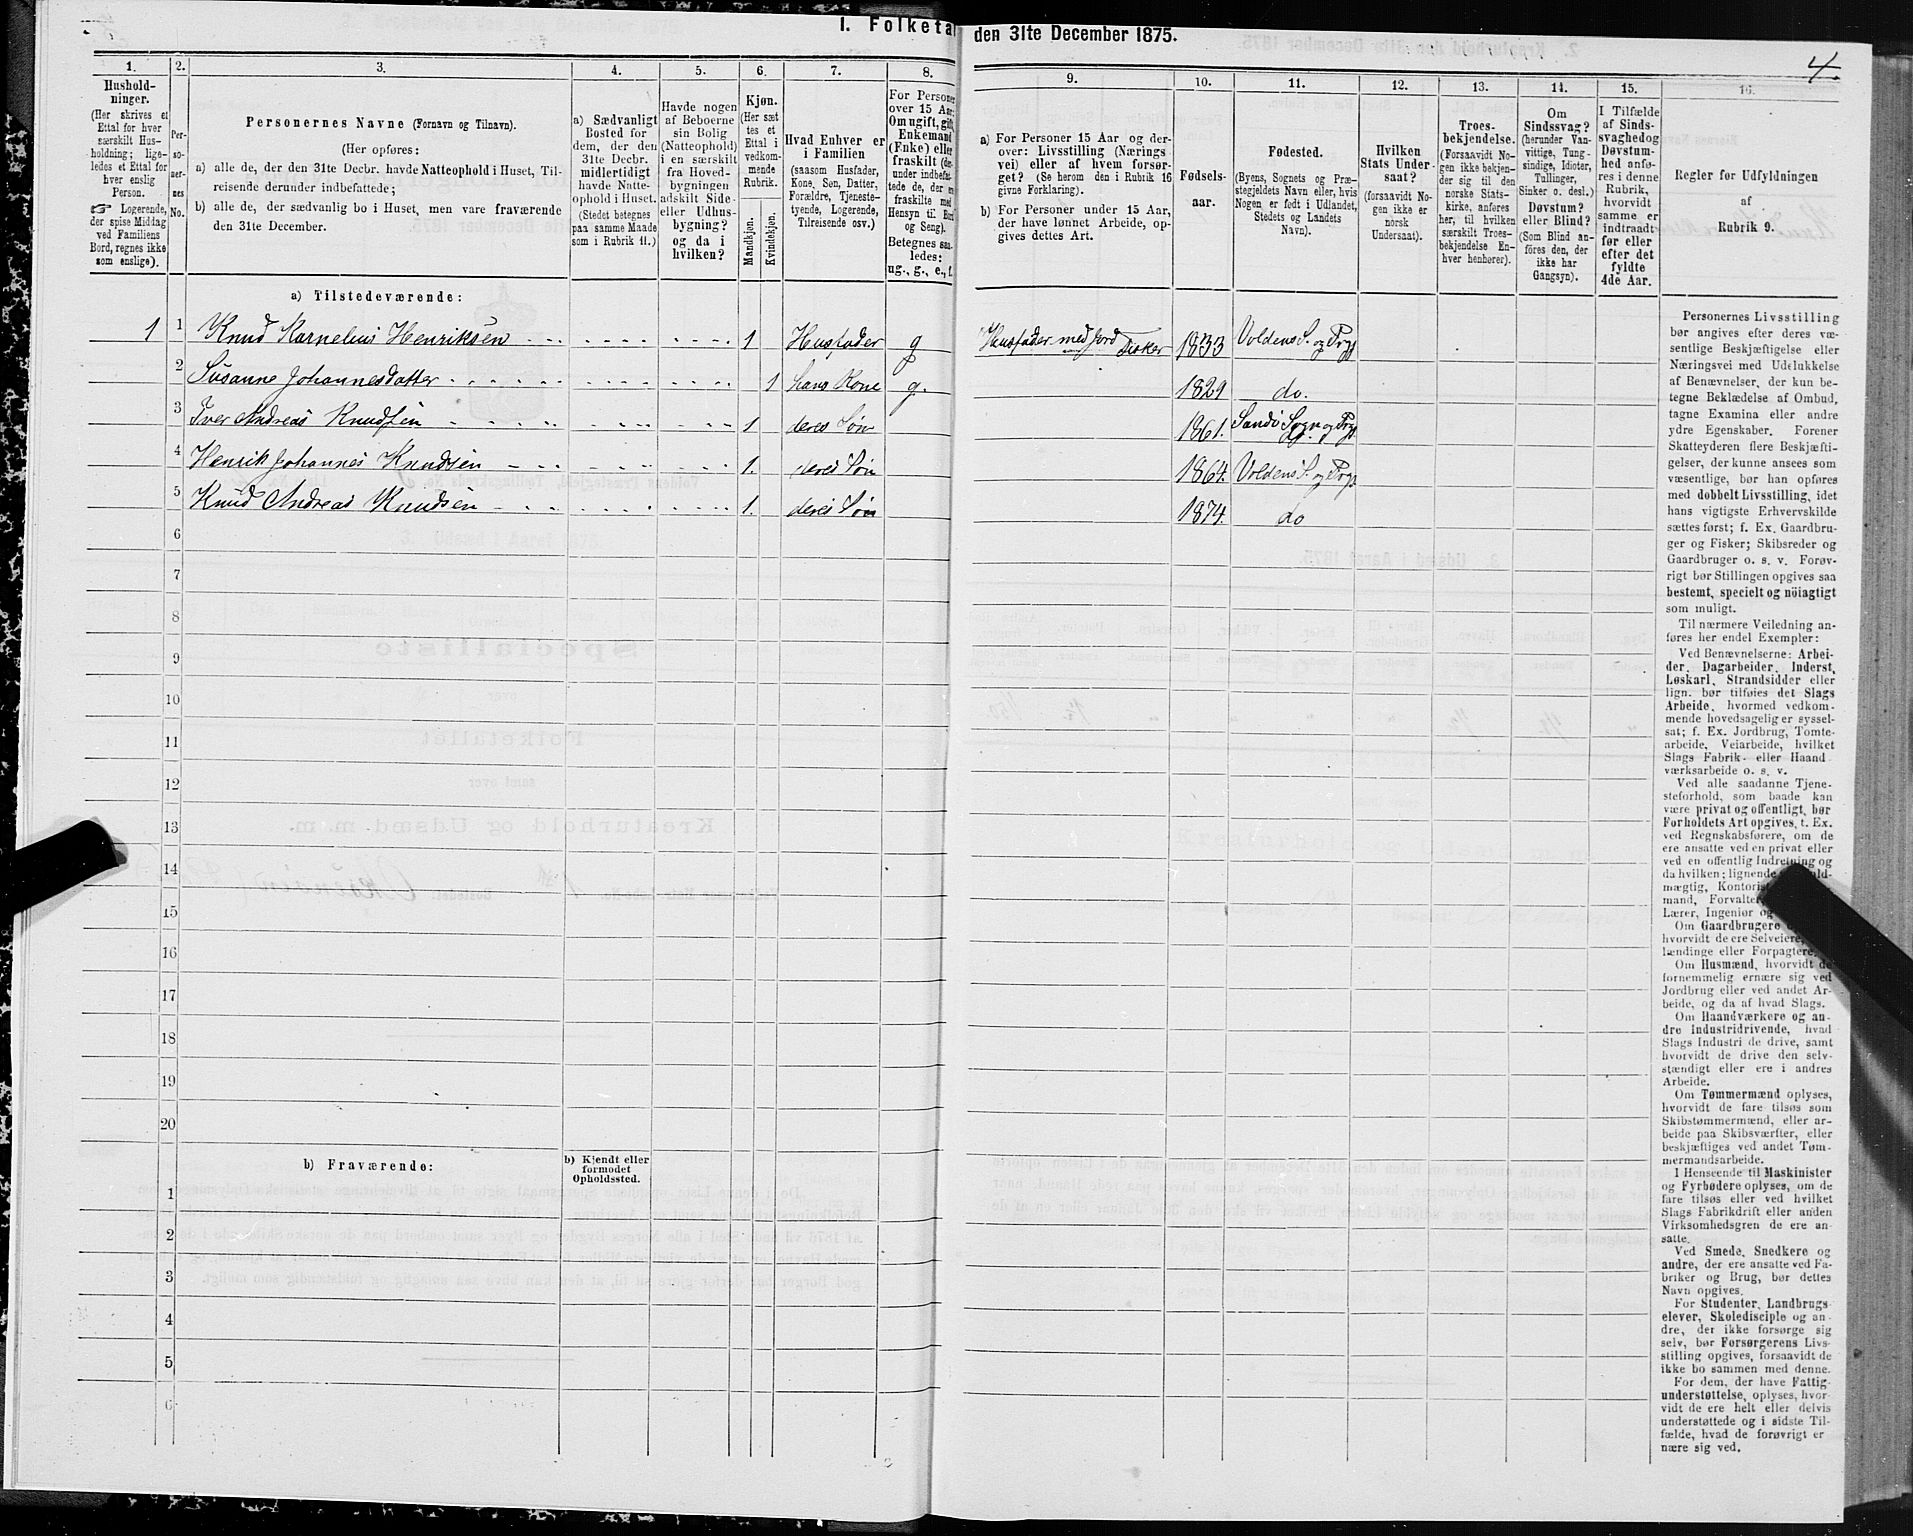 I. Folketal den 31te December 1875.
4.
1.
Hushold-
ninger.
(Her skrives et
Ettal for hver
særskilt Hus-
holdning; lige-
ledes et Ettal for
hver enslig
Person.
☞ Logerende,
der spise Middag
ved Familiens
Bord, regnes ikke
som enslige).
2.
Per-
so-
ner-
nes
No.
3.
Personernes Navne (Fornavn og Tilnavn).
(Her opføres:
a) alle de, der den 31te Decbr. havde Natteophold i Huset, Til-
reisende derunder indbefattede;
b) alle de, der sædvanlig bo i Huset, men vare fraværende
den 31te December.
4.
a) Sædvanligt
Bosted for
dem, der den
31te Decbr.
midlertidigt
havde Natte-
ophold i Huset.
(Stedet betegnes
paa samme Maade
som i Rubrik 11.)
5.
Havde nogen
af Beboerne
sin Bolig
(Natteophold)
i en særskilt
fra Hoved-
bygningen
adskilt Side-
eller Udhus-
bygning?
og da i
hvilken?
6.
Kjøn.
(Her sæt
tes et
Ettal i
vedkom-
mende
Rubrik.
Mandkjøn.
Kvindekjøn.
7.
Hvad Enhver er
i Familien
(saasom Husfader,
Kone, Søn, Datter,
Forældre, Tjeneste-
tyende, Logerende,
Tilreisende osv.)
8.
For Personer
over 15 Aar:
Om ugift, gift,
Enkemand
(Enke) eller
fraskilt (der-
under indbefat-
tede de, der ere
fraskilte med
Hensyn til Bord
og Seng).
Betegnes saa-
ledes:
ug., g., e., f.
9.
a) For Personer 15 Aar og der-
over: Livsstilling (Nærings
vei) eller af hvem forsør-
get? (Se herom den i Rubrik 16
givne Forklaring).
b) For Personer under 15 Aar,
der have lønnet Arbeide, op-
gives dettes Art.
10.
Fødsels-
aar.
11.
Fødested.
(Byens, Sognets og Præ-
stegjeldets Navn eller, hvis
Nogen er født i Udlandet,
Stedets og Landets
Navn).
12.
Hvilken
Stats Under-
saat?
(forsaavidt No-
gen ikke er
norsk
Undersaat).
13.
Troes-
bekjendelse.
(Forsaavidt No-
gen ikke bekjen-
der sig til den
norske Stats-
kirke, anføres
her, til hvilken
særskilt Troes-
bekjendelse En-
hver henhører).
14.
Om
Sindssvag?
(herunder Van-
vittige, Tung-
sindige, Idioter,
Tullinger,
Sinker o. desl.)
Døvstum?
eller Blind?
(Som Blind an-
föres den, der
ikke har
Gangsyn).
15.
I Tilfælde
af Sinds-
svaghed og
Døvstum-
hed anfø-
res i denne
Rubrik,
hvorvidt
samme er
indtraadt
før eller
efter det
fyldte
4de Aar.
16.
Regler for Udfyldningen
af
Rubrik 9.
a) Tilstedeværende:
1 1 Knud Kornelius Henriksen 1 Husfader g Husfader med Jord Fisker 1833 Voldens S. og Prgj
2 Susanne Johannesdatter 1 hans Kone g. 1829 do.
3 Iver Andreas Knudsen 1 deres Søn 1861. Sandö Sogn og Prgj
4 Henrik Johannes Knudsen 1. deres Søn 1864. Voldens S. og Prgj
5 Knud Andreas Knudsen 1. deres Søn 1874. do
6
7
8
9
10
11
12
13
14
15
16
17
18
19
20
b) Fraværende:
b) Kjendt eller
formodet
Opholdssted.
1
2
3
4
5
6
Personernes Livsstilling
bør angives efter deres væ-
sentlige Beskjæftigelse eller
Næringsvei med Udelukkelse
af Benævnelser, der kun be-
tegne Beklædelse af Ombud,
tagne Examina eller andre
ydre Egenskaber. Forener
Skatteyderen flere Beskjæfti-
gelser, der kunne ansees som
væsentlige, bør han opføres
med dobbelt Livsstilling, idet
hans vigtigste Erhvervskilde
sættes først; f. Ex. Gaardbru-
ger og Fisker; Skibsreder og
Gaardbruger o. s. v. Forøv-
rigt bør Stillingen opgives saa
bestemt, specielt og nöiagtigt
som muligt.
Til nærmere Veiledning an-
føres her endel Exempler:
Ved Benævnelserne: Arbei-
der, Dagarbeider, Inderst,
Løskarl, Strandsidder eller
lign. bør tilføies det Slags
Arbeide, hvormed vedkom-
mende hovedsagelig er syssel-
sat; f. Ex. Jordbrug, Tomte-
arbeide, Veiarbeide, hvilket
Slags Fabrik- eller Haand
værksarbeide o. s. v.
Ved alle saadanne Tjene-
steforhold, som baade kan
være privat og offentligt, bør
Forholdets Art opgives, f. Ex.
ved Regnskabsførere, om de
ere ansatte ved en privat eller
ved en offentlig Indretning og
da hvilken; lignende
mægtig, Kontorist
mand, Forvalter
Lærer, Ingeniør og
Om Gaardbrugere
hvorvidt de ere Selveiere,
lændinge eller Forpagtere.
Om Husmænd, hvorvidt de
fornemmelig ernære sig ved
Jordbrug eller ved andet Ar-
beide, og da af hvad Slags.
Om Haandværkere og an-
dre Industridrivende, hvad
Slags Industri de drive, samt
hvorvidt de drive den selv-
stændigt eller ere i andres
Arbeide.
Om Tømmermænd oplyses,
hvorvidt de fare tilsøs som
Skibstømmermænd, eller ar-
beide paa Skibsværfter, eller
beskjæftiges ved andet Tøm-
mermandsarbeide.
I Henseende til Maskinister
og Fyrbødere oplyses, om de
fare tilsøs eller ved hvilket
Slags Fabrikdrift eller anden
Virksomhedsgren de ere an-
satte.
Ved Smede, Snedkere og
andre, der ere ansatte ved Fa-
briker og Brug, bør dettes
Navn opgives.
For Studenter, Landbrugs-
elever, Skoledisciple og an-
dre, der ikke forsørge sig
selv, bør Forsørgerens Livs-
stilling opgives, forsaavidt de
ikke bo sammen med denne.
For dem, der have Fattig-
understøttelse, oplyses, hvor-
vidt de ere helt eller delvis
understøttede og i sidste Til-
fælde, hvad de forøvrigt er
nære sig ved.